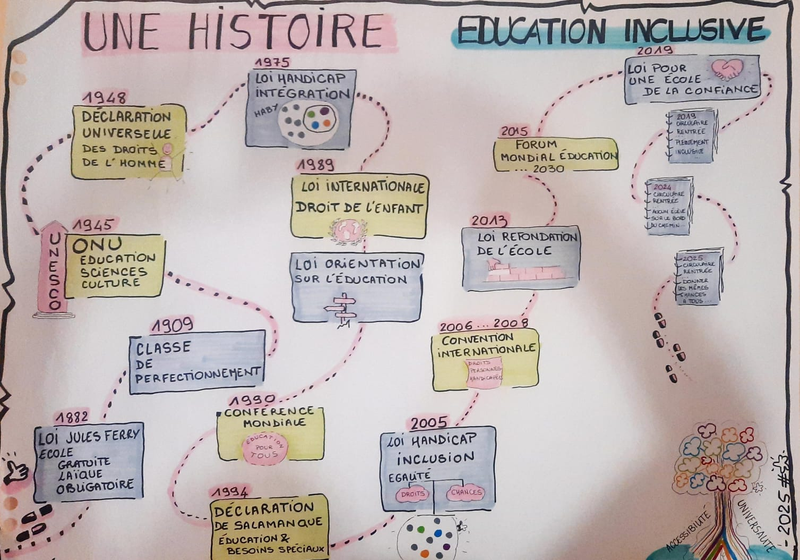 UNE HISTOIRE
EDUCATION INCLUSIVE
1882
LOI JULES FERRY
ECOLE
GRATUITE
LAÏQUE
OBLIGATOIRE
1909
CLASSE
DE
PERFECTIONNEMENT
1945
UNESCO
ONU
EDUCATION
SCIENCES
CULTURE
1948
DÉCLARATION
UNIVERSELLE
DES DROITS
DE L'HOMME
1975
LOI HANDICAP
INTÉGRATION
HABY
1989
LOI INTERNATIONALE
DROIT DE L'ENFANT
LOI ORIENTATION
SUR L'ÉDUCATION
1990
CONFÉRENCE
MONDIALE
EDUCATION
POUR
TOUS
1994
DÉCLARATION
DE SALAMANQUE
EDUCATION &
BESOINS SPÉCIAUX
2005
LOI HANDICAP
INCLUSION
EGALITÉ
DROITS
CHANCES
2006 ... 2008
CONVENTION
INTERNATIONALE
DROITS
PERSONNES
HANDICAPÉES
2013
LOI REFONDATION
DE L'ÉCOLE
2015
FORUM
MONDIAL ÉDUCATION
... 2030
2019
LOI POUR
UNE ÉCOLE
DE LA CONFIANCE
2019
CIRCULAIRE
RENTRÉE
PLEINEMENT
INCLUSIVE
2024
CIRCULAIRE
RENTRÉE
AUCUN ÉLÈVE
SUR LE BORD
DU CHEMIN
2025
CIRCULAIRE
RENTRÉE
DONNER
LES MÊMES
CHANCES
À TOUS
ACCESSIBILITÉ
UNIVERSALITÉ
2025